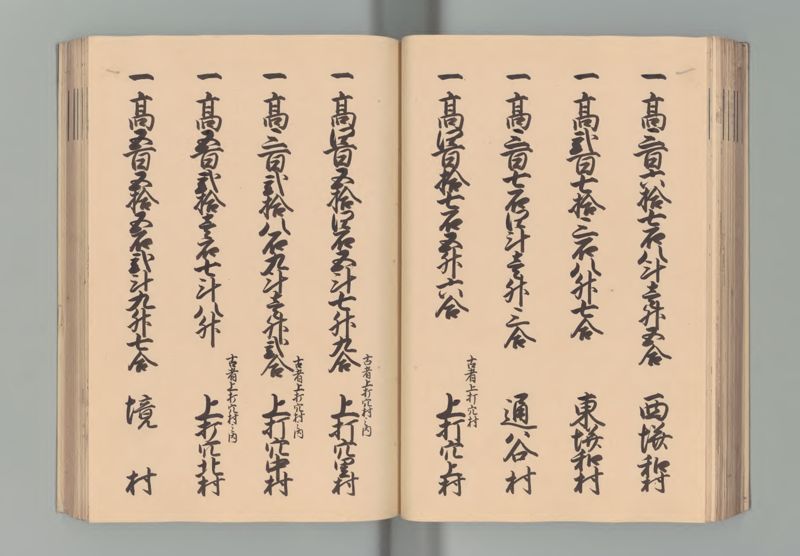 一 高三百六拾七石八斗壱升五合 西塔和村
一 高弐百七拾三石八升七合 東塔和村
一 高三百七石四斗壱升三合 通谷村
一 高四百拾七石五升六合 古者上打穴村 上打穴上村
一 高四百五拾四石五斗七升九合 古者上打穴村之内 上打穴里村
一 高三百弐拾八石九斗壱升弐合 古者上打穴村之内 上打穴中村
一 高五百弐拾壱石七斗八升 古者上打穴村之内 上打穴北村
一 高五百五拾五石弐斗九升七合 境村